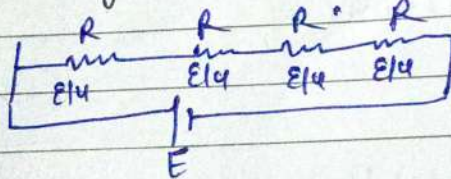 R R R R
E/4 E/4 E/4 E/4
E